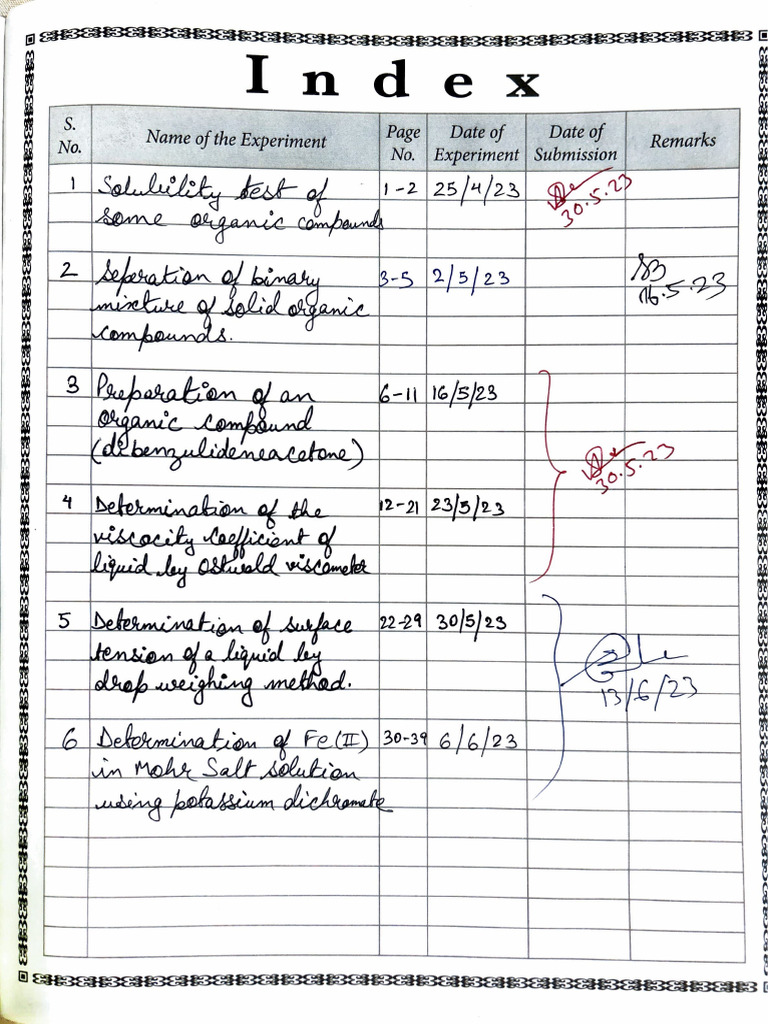 Index
S. No. Name of the Experiment Page No. Date of Experiment Date of Submission Remarks
1 Solubility test of 1-2 25/4/23 30.5.23
some organic compounds
2 Seperation of binary 3-5 2/5/23 SB
mixture of solid organic 16.5.23
compounds.
3 Preparation of an 6-11 16/5/23
organic compound
(dibenzulideneacetone) 30.5.23
4 Determination of the 12-21 23/5/23
viscocity coefficient of
liquid by Ostwald viscometer
5 Determination of surface 22-29 30/5/23
tension of a liquid by
drop weighing method. 13/6/23
6 Determination of Fe(II) 30-39 6/6/23
in Mohr Salt solution
using potassium dichromate